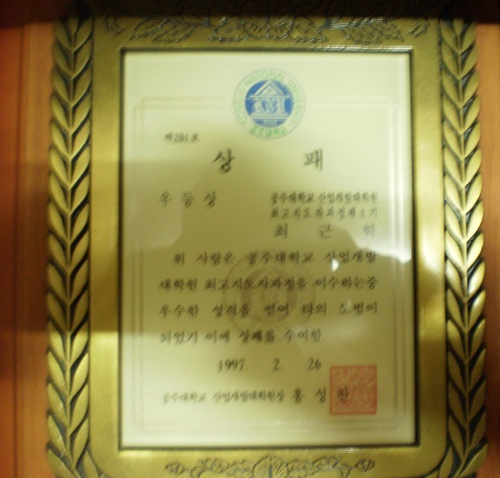 KONGJU NATIONAL UNIVERSITY
공주대학교
제201호
상 패
우 등 상
공주대학교 산업개발대학원
최고지도자과정제4기
최 근 학
위 사람은 공주대학교 산업개발
대학원 최고지도자과정을 이수하는중
우수한 성적을 얻어 타의 모범이
되었기 이에 상패를 수여함.
1997. 2. 26
공주대학교 산업개발대학원장 홍 성